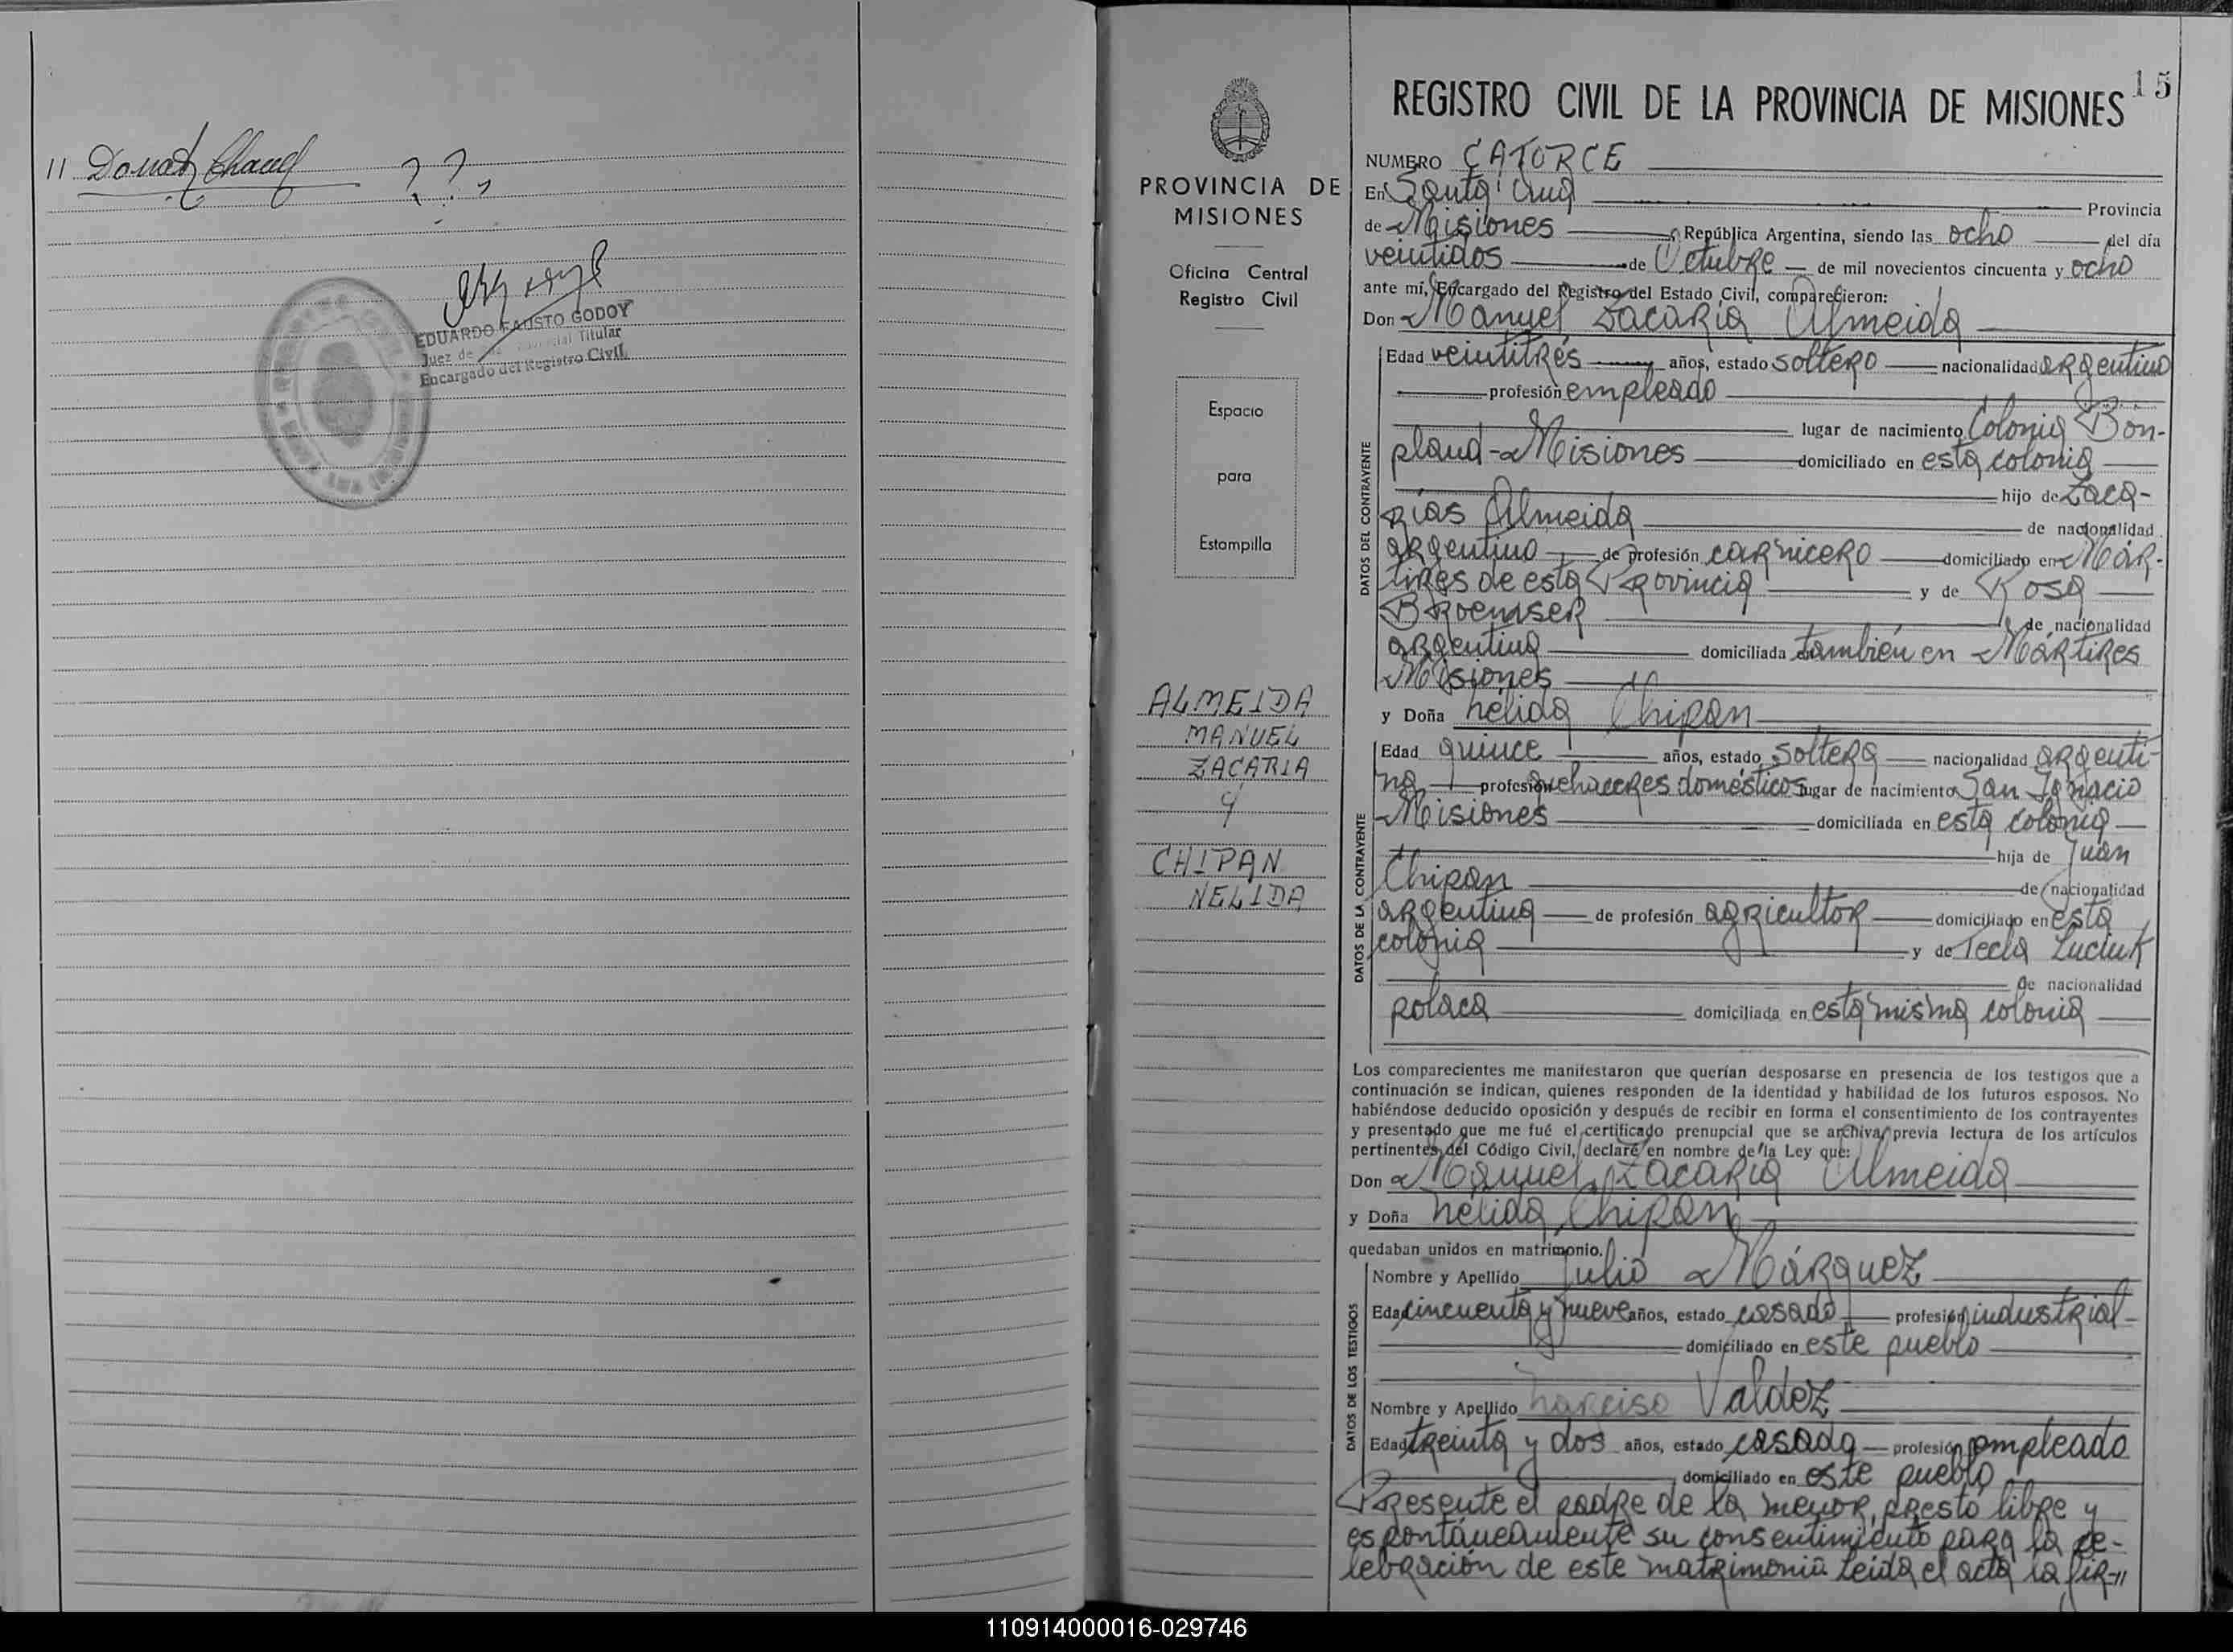 EDUARDO FAUSTO GODOY
Juez de Titular
Encargado del Registro Civil
PROVINCIA DE
MISIONES
Oficina Central
Registro Civil
Espacio
para
Estampilla
ALMEIDA
MANUEL
ZACARIA
Y
CHIPAN
NELIDA
15
REGISTRO CIVIL DE LA PROVINCIA DE MISIONES
NUMERO CATORCE
En Santa Ana Provincia
de Misiones República Argentina, siendo las ocho del día
veintidos de Octubre de mil novecientos cincuenta y ocho
ante mí, Encargado del Registro del Estado Civil, comparecieron:
Don Manuel Zacaria Almeida
DATOS DEL CONTRAYENTE
Edad veintitrés años, estado soltero nacionalidad argentino
profesión empleado
lugar de nacimiento Colonia Bon-
pland - Misiones domiciliado en esta colonia
hijo de Zaca-
rías Almeida de nacionalidad
argentino de profesión carnicero domiciliado en Már-
tires de esta Provincia y de Rosa
de nacionalidad
argentina domiciliada también en Mártires
Misiones
y Doña Nélida Chipan
DATOS DE LA CONTRAYENTE
Edad quince años, estado soltera nacionalidad argenti-
na profesión quehaceres domésticos lugar de nacimiento San Ignacio
Misiones domiciliada en esta colonia
hija de Juan
Chipan de nacionalidad
argentina de profesión agricultor domiciliado en esta
colonia y de Tecla Luciuk
de nacionalidad
polaca domiciliada en esta misma colonia
Los comparecientes me manifestaron que querían desposarse en presencia de los testigos que a
continuación se indican, quienes responden de la identidad y habilidad de los futuros esposos. No
habiéndose deducido oposición y después de recibir en forma el consentimiento de los contrayentes
y presentado que me fué el certificado prenupcial que se archiva, previa lectura de los artículos
pertinentes del Código Civil, declaré en nombre de la Ley que:
Don Manuel Zacaria Almeida
y Doña Nélida Chipan
quedaban unidos en matrimonio.
DATOS DE LOS TESTIGOS
Nombre y Apellido Julio Márquez
Edad cincuenta y nueve años, estado casado profesión industrial
domiciliado en este pueblo
Nombre y Apellido Narciso Valdez
Edad treinta y dos años, estado casado profesión empleado
domiciliado en este pueblo
Presente el padre de la menor, prestó libre y
espontáneamente su consentimiento para la ce-
lebración de este matrimonio. Leída el acta la fir-//
110914000016-029746